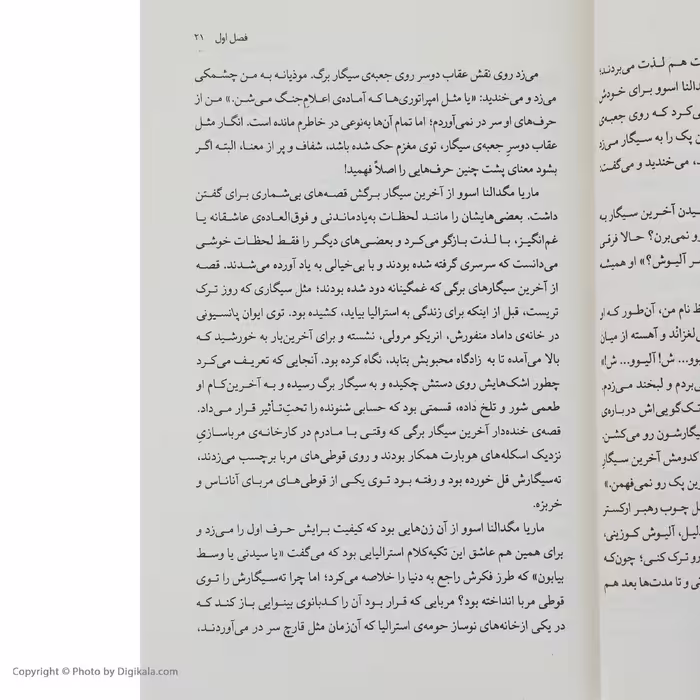 فصل اول ۲۱
می‌زد روی نقش عقاب دوسر روی جعبه‌ی سیگار برگ. موذیانه به من چشمکی
می‌زد و می‌خندید: «یا مثل امپراتوری‌ها که آماده‌ی اعلام‌جنگ می‌شن.» من از
حرف‌های او سر در نمی‌آوردم؛ اما تمام آن‌ها به‌نوعی در خاطرم مانده است. انگار مثل
عقاب دوسرِ جعبه‌ی سیگار، توی مغزم حک شده باشد، شفاف و پر از معنا، البته اگر
بشود معنای پشت چنین حرف‌هایی را اصلاً فهمید!
ماریا مگدالنا اسوو از آخرین سیگار برگش قصه‌های بی‌شماری برای گفتن
داشت. بعضی‌هایشان را مانند لحظات به‌یادماندنی و فوق‌العاده‌ی عاشقانه یا
غم‌انگیز، با لذت بازگو می‌کرد و بعضی‌های دیگر را فقط لحظات خوشی
می‌دانست که سرسری گرفته شده بودند و با بی‌خیالی به یاد آورده می‌شدند. قصه
از آخرین سیگارهای برگی که غمگینانه دود شده بودند؛ مثل سیگاری که روز ترک
تریست، قبل از اینکه برای زندگی به استرالیا بیاید، کشیده بود. توی ایوان پانسیونی
در خانه‌ی داماد منفورش، انریکو مرولی، نشسته و برای آخرین‌بار به خورشید که
بالا می‌آمده تا به زادگاه محبوبش بتابد، نگاه کرده بود. آنجایی که تعریف می‌کرد
چطور اشک‌هایش روی دستش چکیده و به سیگار برگ رسیده و به آخرین‌کام او
طعمی شور و تلخ داده، قسمتی بود که حسابی شنونده را تحت‌تأثیر قرار می‌داد.
قصه‌ی خنده‌دار آخرین سیگار برگی که وقتی با مادرم در کارخانه‌ی مرباسازیِ
نزدیک اسکله‌های هوبارت همکار بودند و روی قوطی‌های مربا برچسب می‌زدند،
ته‌سیگارش قل خورده بود و رفته بود توی یکی از قوطی‌های مربای آناناس و
خربزه.
ماریا مگدالنا اسوو از آن زن‌هایی بود که کیفیت برایش حرف اول را می‌زد و
برای همین هم عاشق این تکیه‌کلام استرالیایی بود که می‌گفت «یا سیدنی یا وسط
بیابون» که طرز فکرش راجع به دنیا را خلاصه می‌کرد؛ اما چرا ته‌سیگارش را توی
قوطی مربا انداخته بود؟ مربایی که قرار بود آن را کدبانوی بینوایی باز کند که
در یکی ازخانه‌های نوساز حومه‌ی استرالیا که آن‌زمان مثل قارچ سر در می‌آوردند،
ت هم لذت می‌بردند؛
دالنا اسوو برای خودش
ی‌کرد که روی جعبه‌ی
ن پک را به سیگار می‌زد
د، می‌خندید و می‌گفت:
یدن آخرین سیگار به
رو نمی‌برن؟ حالا فرقی
ر آلیوش؟» او همیشه
ظ نام من، آن‌طور که او
ی‌لغزاند و آهسته از میان
یوو... ش! آلیوو... ش!»
ی‌بردم و لبخند می‌زدم.
تک‌گویی‌اش درباره‌ی
سیگارشون رو می‌کشن.
کدومش آخرین سیگار
رین پک رو نمی‌فهمن.»
ل چوب رهبر ارکستر
لیل، آلیوش کوزینی،
رو ترک کنی؛ چون‌که
ئی و تا مدت‌ها بعد هم
Copyright © Photo by Digikala.com